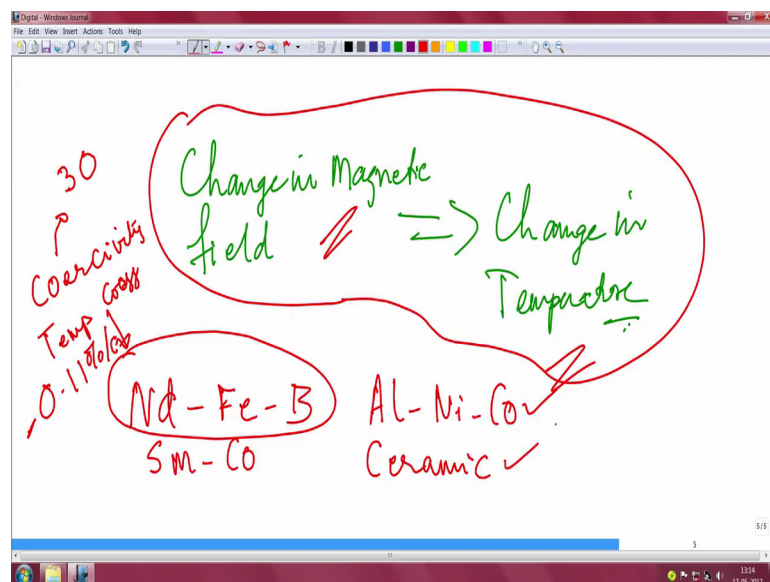 Digital - Windows Journal
File Edit View Insert Actions Tools Help
30
Coercivity
Temp coeff
0.11%/
Change in Magnetic
field
=> Change in
Temperature
Nd-Fe-B
Sm-Co
Al-Ni-Co
Ceramic
5/5
5
13:14
17-05-2017